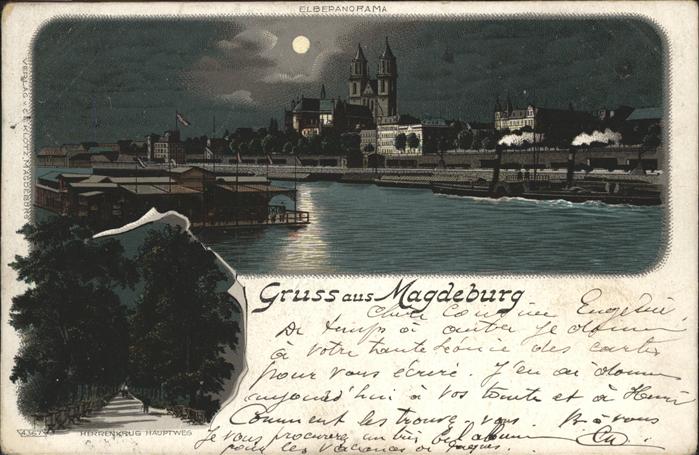 ELBEPANORAMA
VERLAG v. C. E. KLOTZ, MAGDEBURG
Gruss aus Magdeburg
Chère Cousine Eugénie
De temps à autre je donne
à votre tante des cartes
pour vous écrire. J'en ai donné
aujourd'hui à vos tante et à Henri
Comment les trouvez vous
Je vous procurera un très bel album
pour les vacances de Pâques.
HERRENKRUG HAUPTWEG